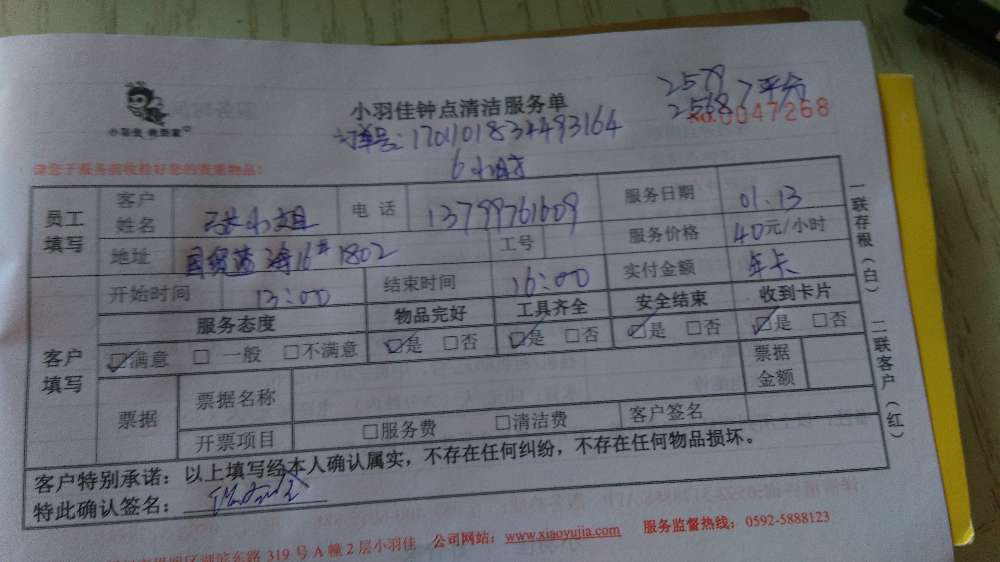 小羽佳 救到家
小羽佳钟点清洁服务单
2579
2568 7 平分
No.0047268
订单号:
6小时
请您于服务前收捡好您的贵重物品!
员工填写
客户姓名 张小姐 电话 13799761609 服务日期 01.13
地址 16# 1802 工号 服务价格 40元/小时
开始时间 13:00 结束时间 16:00 实付金额 年卡
客户填写
服务态度 物品完好 工具齐全 安全结束 收到卡片
☑满意 □ 一般 □不满意 ☑是 □否 ☑是 □否 ☑是 □否 ☑是 □否
票据 票据名称 票据金额
开票项目 □服务费 □清洁费 客户签名
客户特别承诺:以上填写经本人确认属实,不存在任何纠纷,不存在任何物品损坏。
特此确认签名:
湖滨东路 319 号 A 幢 2 层小羽佳 公司网站:www.xiaoyujia.com 服务监督热线:0592-5888123
一联存根(白) 二联客户(红)